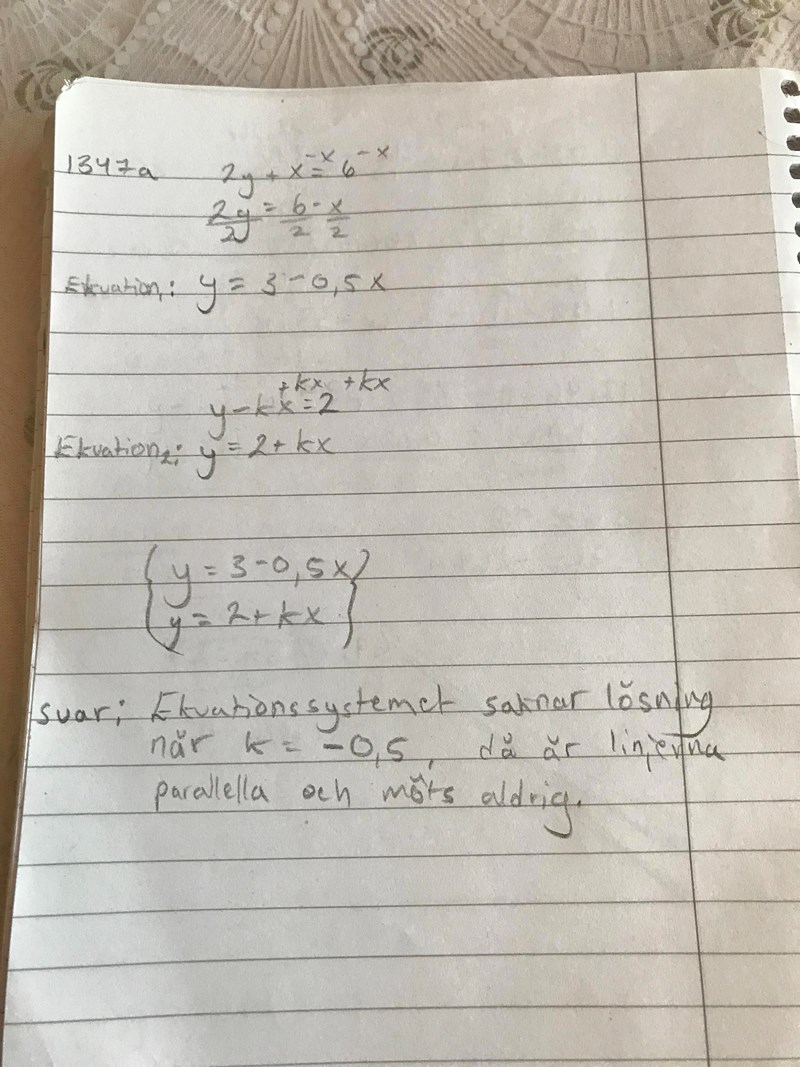 1347a 2y + x = 6 -x -x
2y/2 = 6/2 - x/2
Ekvation1: y = 3 - 0,5x
+kx +kx
y - kx = 2
Ekvation2: y = 2 + kx
{ y = 3 - 0,5x }
{ y = 2 + kx }
svar: Ekvationssystemet saknar lösning
när k = -0,5, då är linjerna
parallella och möts aldrig.